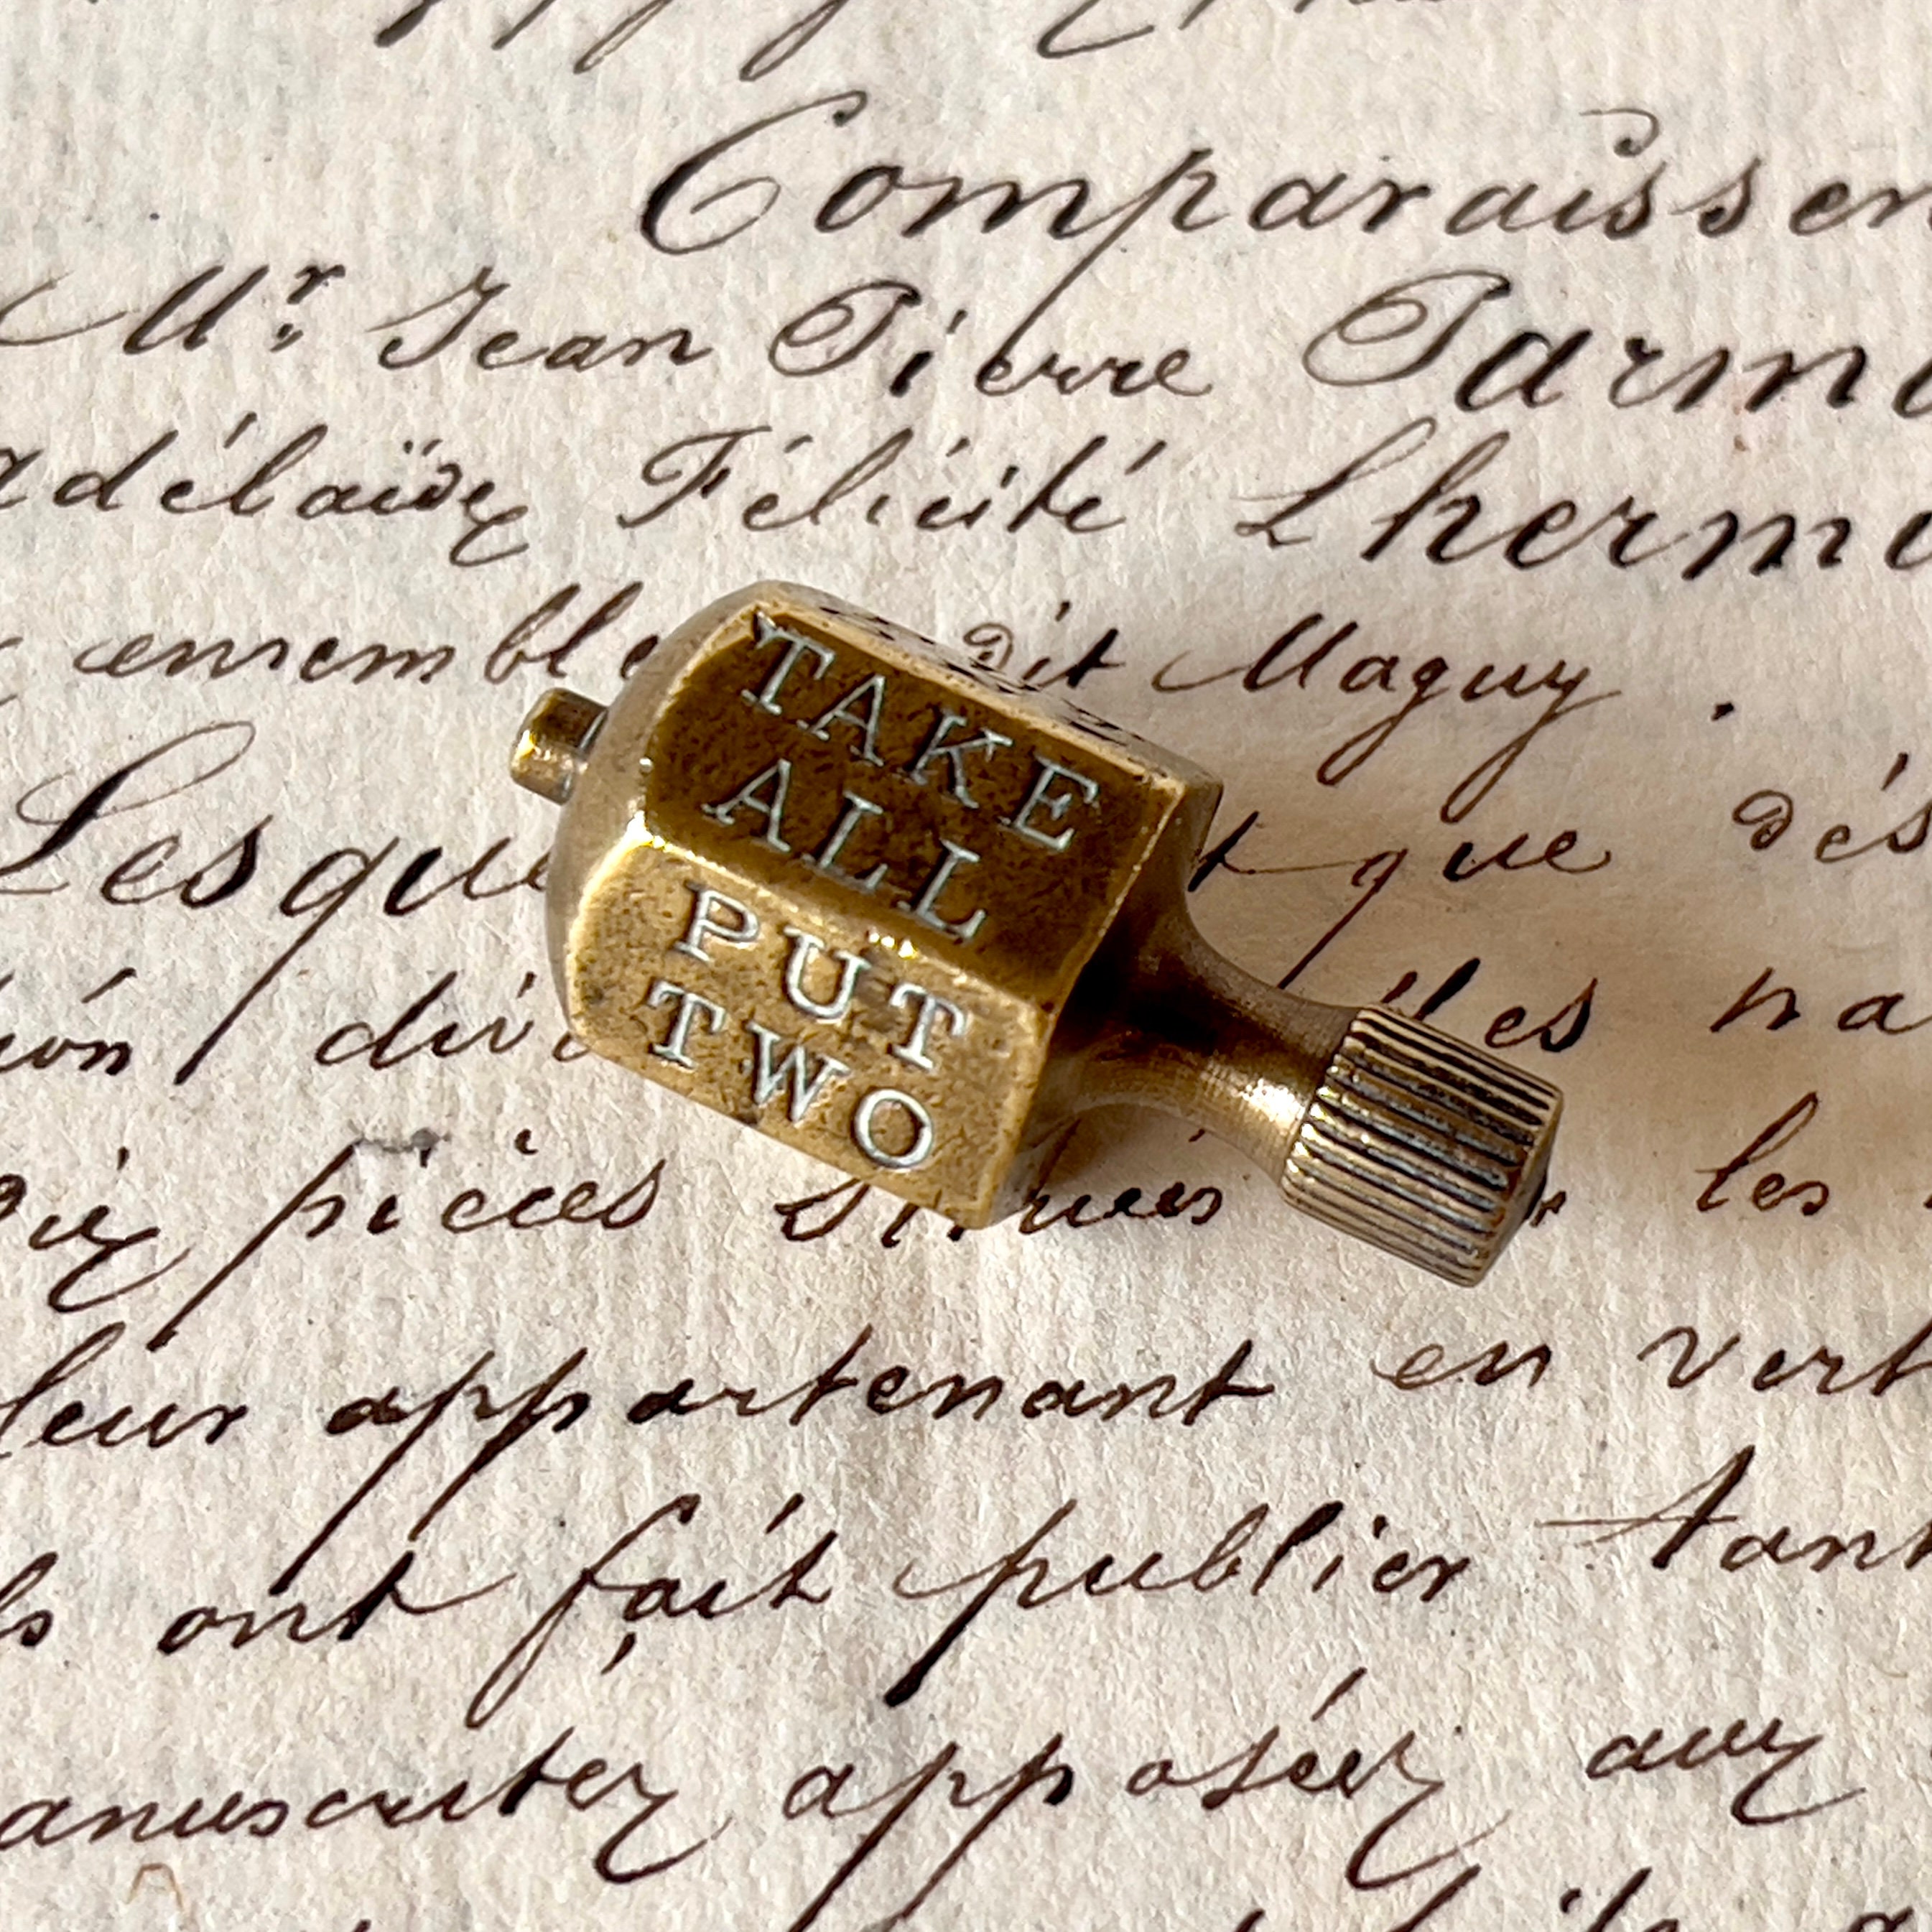 Comparaissen
Mr Jean Pierre Parm
adélaïde Félicité Lherm
ensemble dit Maguy.
Lesque t que dés
ion div les na
pièces les
leur appartenant en vert
ls ont fait publier tant
anuscrites apposées aux
TAKE
ALL
PUT
TWO